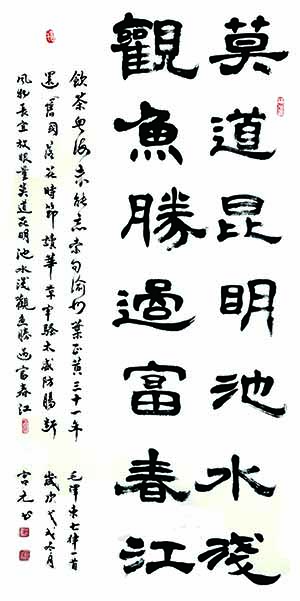 莫道昆明池水淺
觀魚勝過富春江
飲茶粵海未能忘索句渝州葉正黃三十一年
還舊國落花時節讀華章牢騷太盛防腸斷
風物長宜放眼量莫道昆明池水淺觀魚勝過富春江
毛澤東七律一首
歲次戊戌冬月